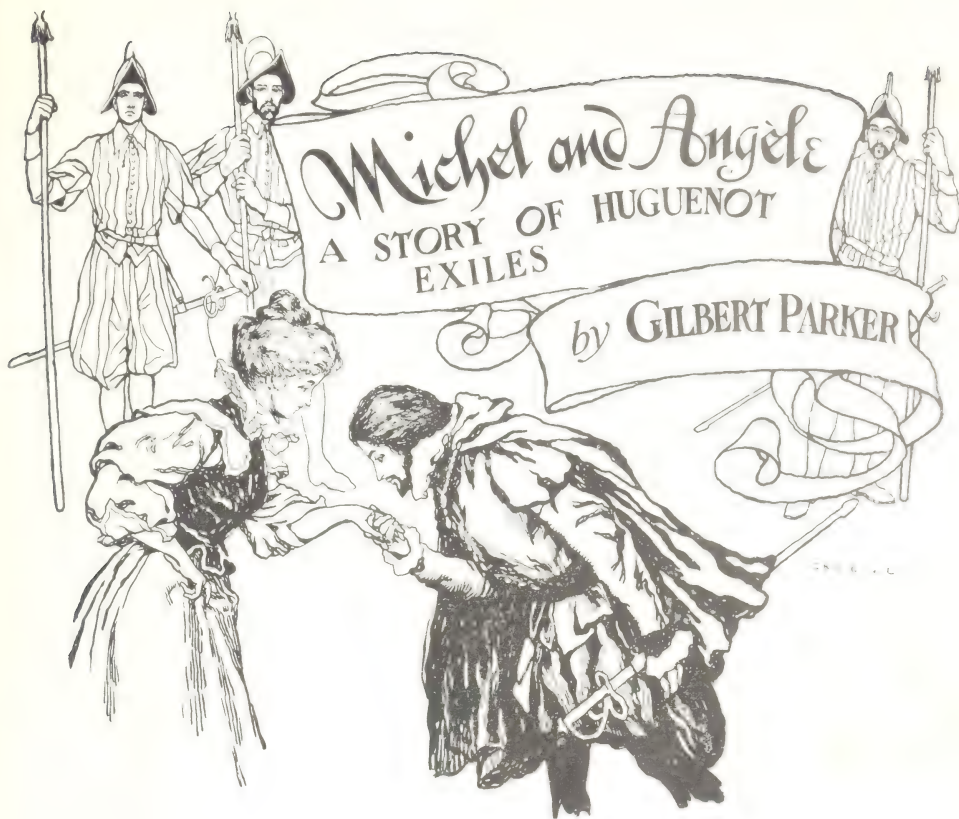 Michel and Angèle
A STORY OF HUGUENOT
EXILES
by GILBERT PARKER